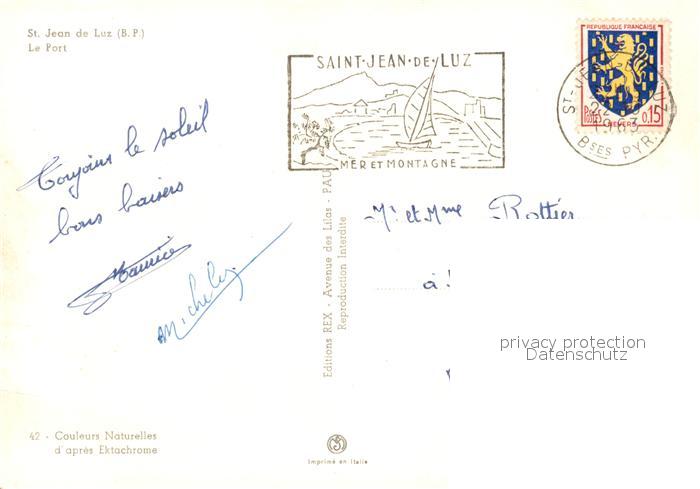 St. Jean de Luz (B.P.)
Le Port
SAINT·JEAN·DE·LUZ
MER ET MONTAGNE
REPUBLIQUE FRANCAISE
POSTES
NEVERS
0,15
ST-JEAN LUZ
22
1963
BSES PYR.
Toujours le soleil
bons baisers
Maurice
Michely
Mr et Mme Rottier
à !
Editions REX - Avenue des Lilas - PAU
Reproduction Interdite
privacy protection
Datenschutz
42 - Couleurs Naturelles
d'après Ektachrome
Imprimé en Italie